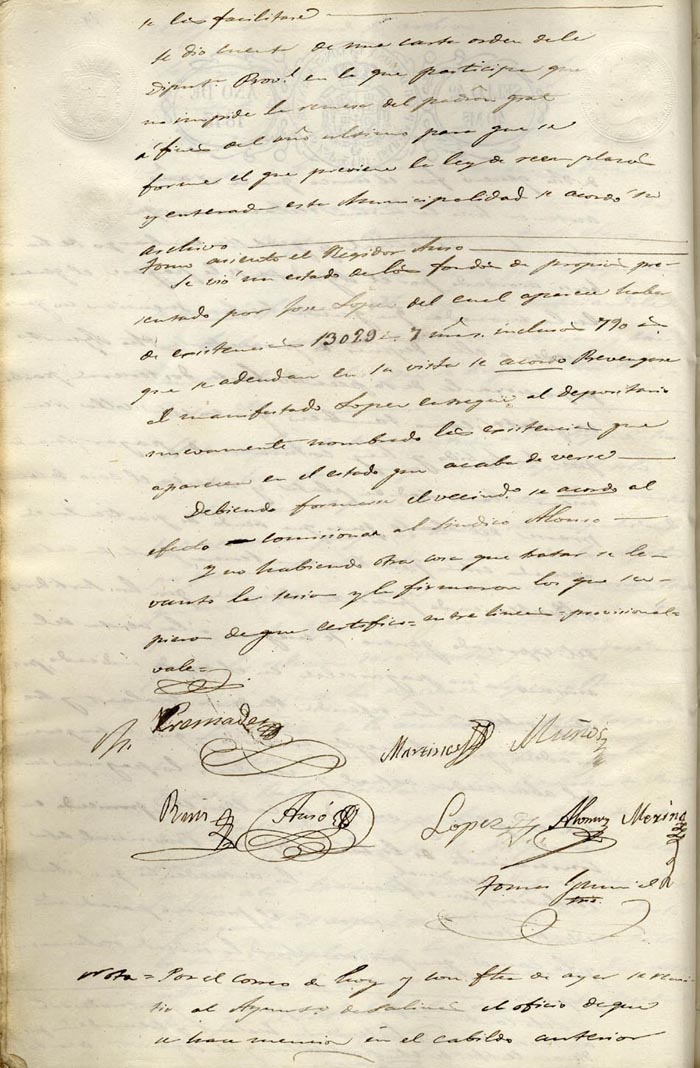 se les facilitare
se dio cuenta de una carta orden de la
Diput.ⁿ Prov.ˡ en la que participa que
no impide la remesa del padron gral
á fines del año ultimo para que se
forme el que previene la ley de reemplazos
y enterada esta Municipalidad se acordó su
archivo
Tomo asiento el Regidor Auso
Se vió un estado de los fondos de propios pre-
sentado por Jose Lopez del cual aparece haber
de existencias 13029 7 mrs. inclusos 790
que se adeudan en su vista se acordo Prevengase
el manifestado Lopez entregue al depositario
nuevamente nombrado las existencias que
aparecen en el estado que acaba de verse
Debiendo formarse el vecind.º se acordo al
efecto comisionar al Sindico Alonso
Y no habiendo otra cosa que tratar se le-
vanto la sesion y la firmaron los que su-
pieron de que certifico = entre lineas = provisional =
vale =
Premades
Martinez Muños
Ruiz Ausó Lopez Alonso Merino
Tomas
Nota = Por el correo de hoy y con fha de ayer se remi-
tio al Ayunt.º de Salinas el oficio de que
se hace mencion en el cabildo anterior
AÑO DE